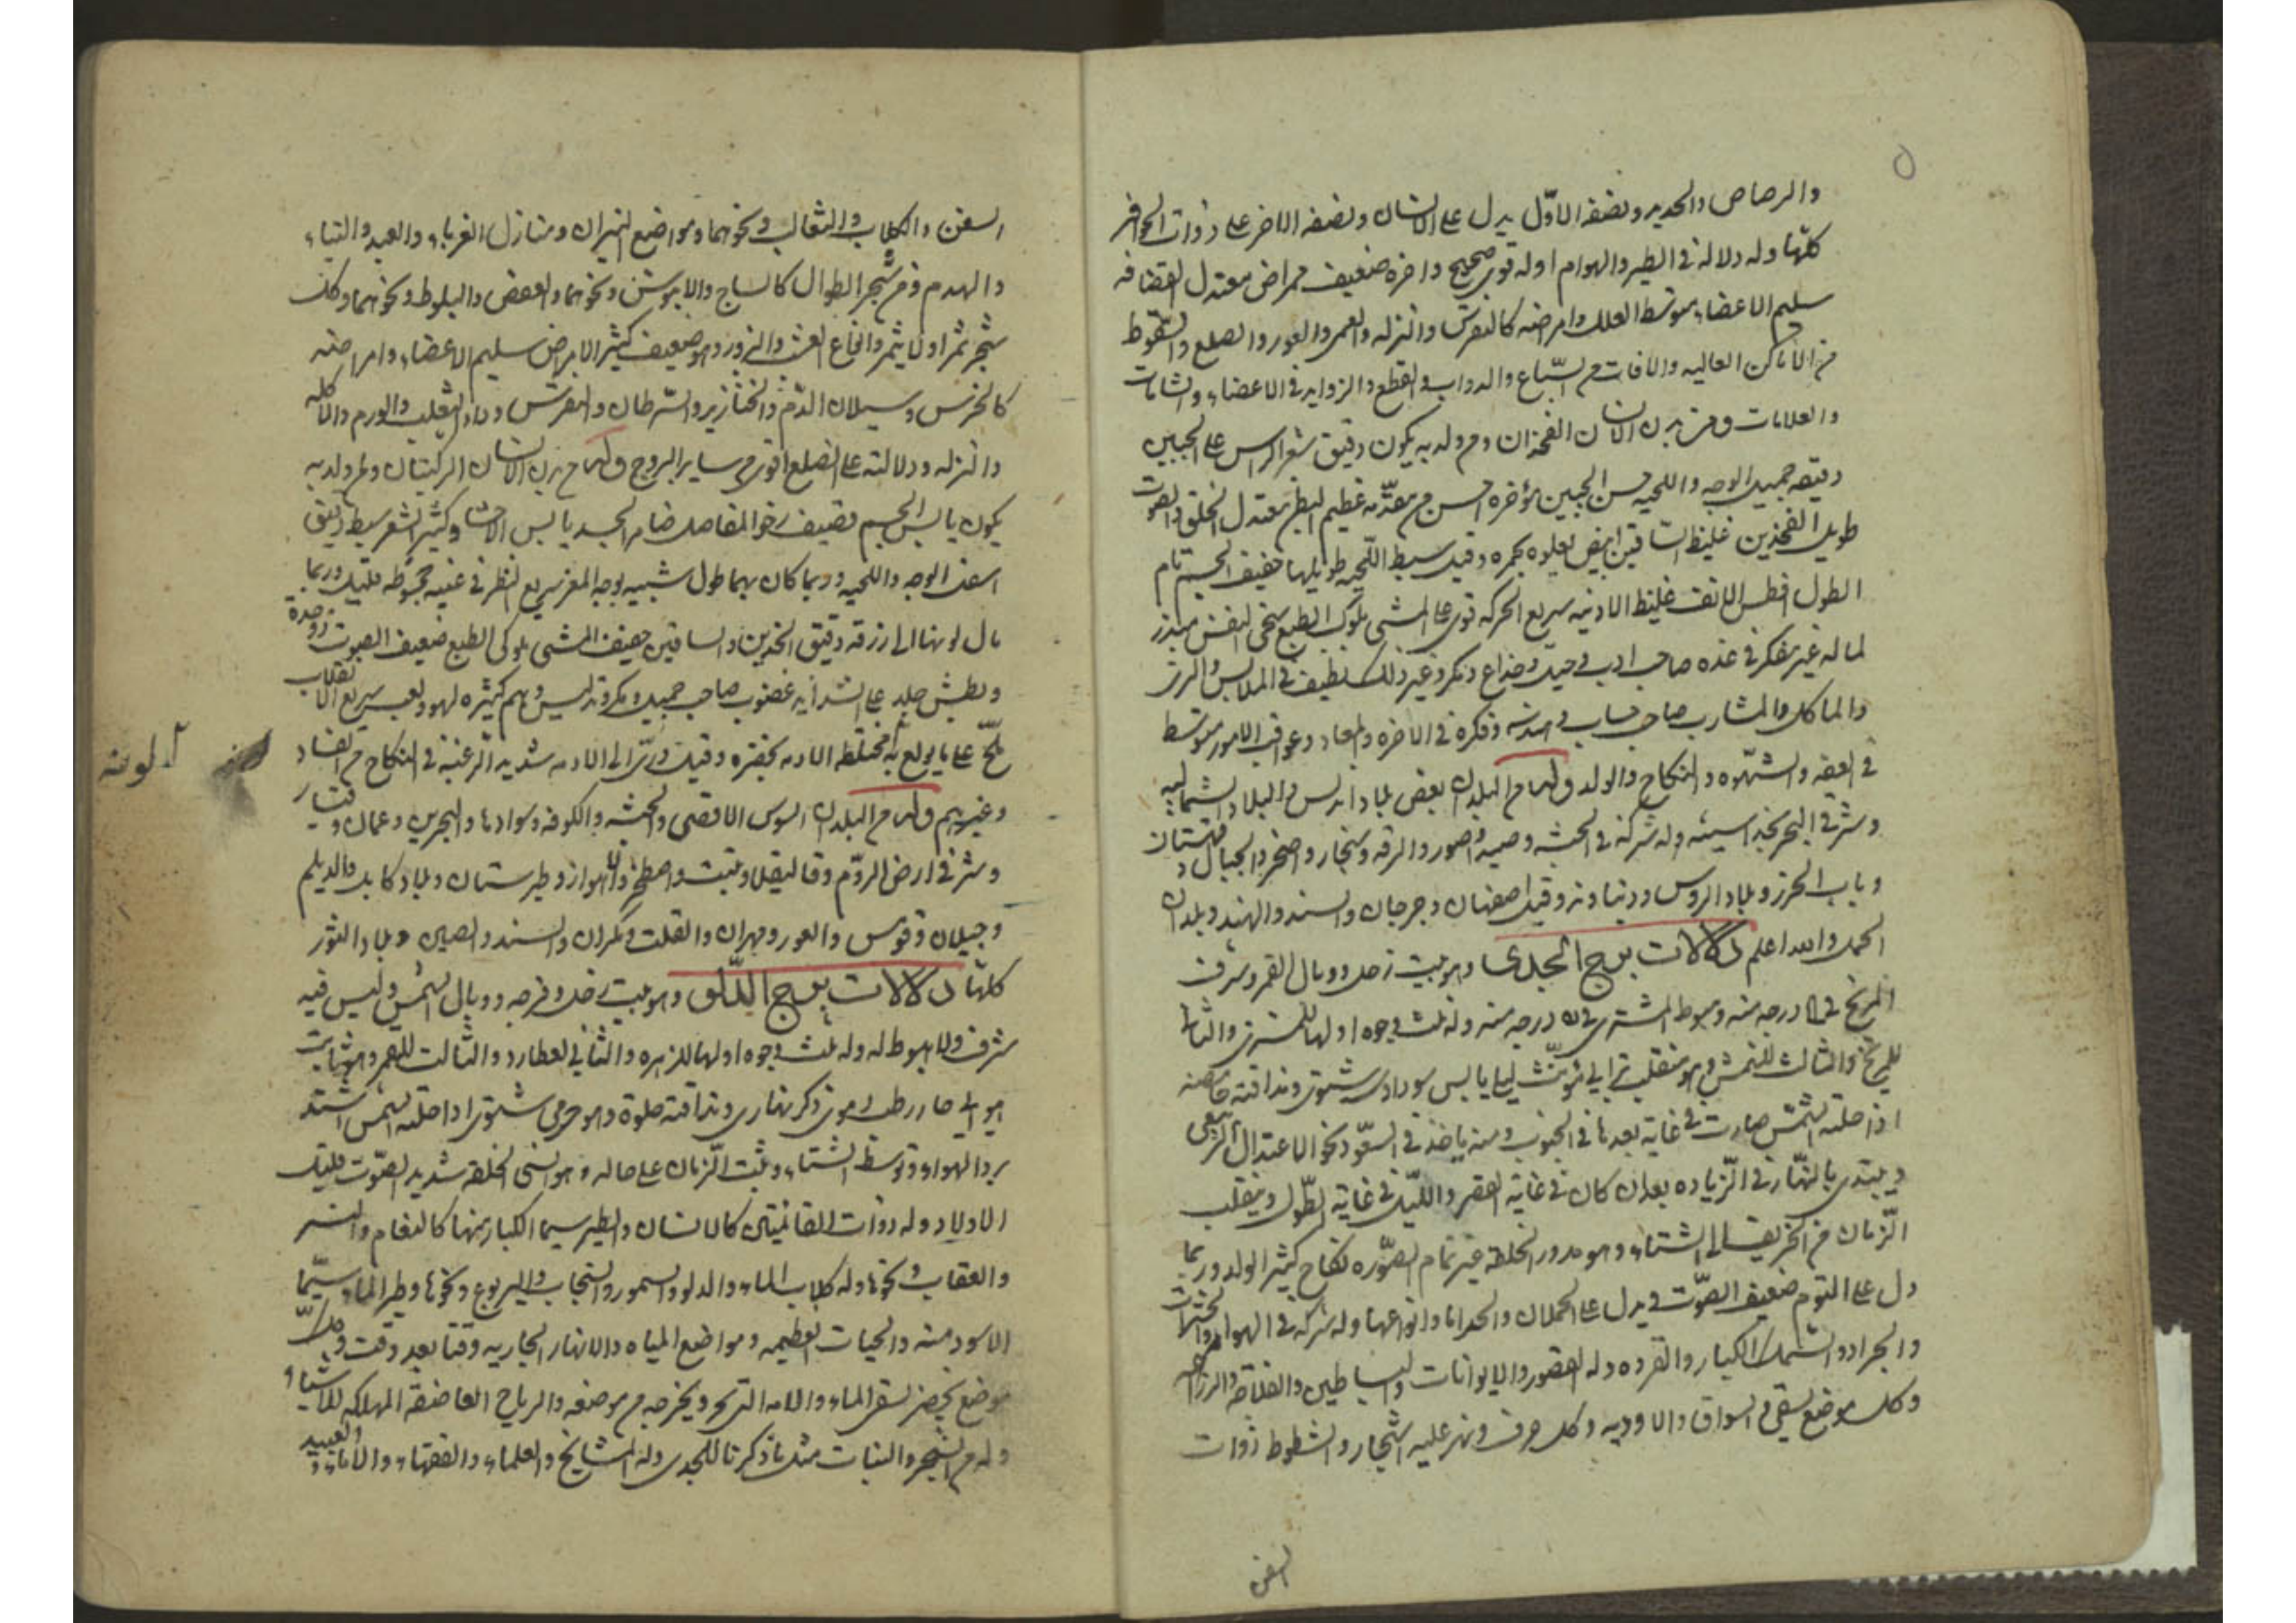 ٥
والرصاص والحديد ونصفه الاوّل يدل على الانسان ونصفه الاخر على ذوات الحوافر
كلّها وله دلالة في الطير والهوام اوله قوى صحيح واخره ضعيف ممراض معتدل القضافه
سليم الاعضاء متوسط العلل وامراضه كالنقرس والنزله والعمى والعور والصلع والسّقوط
من الاماكن العاليه والافات من السّباع والدواب والقطع والزوايد في الاعضاء والشامات
والعلامات ومن بدن الانسان الفخذان ومن ولد به يكون دقيق شعر الراس على الجبين
دقيقه جميل الوجه واللحيه حسن الجبين مؤخره احسن من مقدّمه عظيم البطن معتدل الخلق والصوت
طويل الفخذين غليظ الساقين ابيض يعلوه بحمره وقيل سبط اللّحيه طويلها خفيف الجسم تام
الطول افطس الانف غليظ الارنبه سريع الحركه قوى على المشى ملوكى الطبع سخى النفس مبذر
لماله غير مفكر في غده صاحب ادب وحيل وخداع ومكر وغير ذلك لطيف في الملابس والزى
والماكل والمشارب صاحب حساب وهندسه وفكرة في الاخره والمعاد وعواقب الامور متوسط
في العفه والشهوه والنكاح والولد وله من البلدان بعض بلاد اندلس والبلاد الشماليه
وباب الخرز وبلاد الروس ودنباوند وقيل اصفهان وجرجان والسند والهند وبلدان
الحمل والله اعلم دلالات برج الجدى وهو بيت زحل ووبال القمر وشرف
المريخ في درجه منه وهبوط المشترى في درجه منه وله ثلث وجوه اولها للمشترى والثانى
للمريخ والثالث للشمس وهو منقلب ترابي مؤنث ليلي يابس سوداوى شتوى ومذاقته حامضه
اذا حلته الشمس صارت في غاية بعدها في الجنوب ومنه ياخذ في الصعود نحو الاعتدال الربيعى
ويبتدى بالنهار في الزياده بعد ان كان في غاية القصر والليل في غاية الطول وينقلب
الزمان من الخريف الى الشتاء وهو مدور الخلقه غير تمام الصّوره نكاح كثير الولد وربما
دل على التوم ضعيف الصّوت ويدل على الحملان والجدايا وانواعها وله شركه في الهوام والحشرات
والجراد والسّمك الكبار والقرده وله القصور والايوانات والبساطين والفلاحة والزراعه
وكل موضع يسقى من السواق والاوديه وكل جرف ونهر عليه اشجار والشطوط ذوات
السفن
السفن والكلاب والثعالب ونحوهما ومواضع النيران ومنازل الغرباء والعبيد والنساء
والهدم ومن شجر الطوال كالساج والابنوس ونحوهما والعفص والبلوط ونحوهما وكل
شجر يثمر او لا يثمر وانواع الغش والزور وهو ضعيف كثير الامراض سليم الاعضاء وامراضه
كالخرس وسيلان الدّم والخنازير والسّرطان والنقرس وداء الثعلب والورم والاكله
والنزله ودلالته على الصلع اقوى من ساير البروج وله من بدن الانسان الركبتان ومن ولد به
يكون يابس الجسم قضيف رخو المفاصل ضامر الجسد يابس الاحشا وكثير الشعر سبط دقيق
وبطش جلد على الشدايد غضوب صاحب حيل ومكر وتدليس وهم كثيره لهو ولعب سريع الانقلاب
وغيرهم وله من البلدان السوس الاقصى والحبشه والكوفه وسوادها والبحرين وعمان
وشركة في ارض الروم وقاليقلا وتبت واصطخر والاهواز وطبرستان وبلاد كابل والديلم
وجيلان وقومس والغور ومهران والقلت ومكران والسند والصين وبلاد الثور
كلها دلالات برج الدّلو وهو بيت زحل وفرحه ووبال الشمس وليس فيه
شرف ولا هبوط له وله ثلث وجوه اولها للزهره والثاني لعطارد والثالث للقمر وهو ثابت
هوائي حار رطب دموى ذكر نهارى ومذاقته حلوة وهو خرمى شتوى اذا حلته الشمس اشتد
برد الهواء وتوسط الشتاء وثبت الزمان على حاله وهو انسى الخلقه شديد الصّوت قليل
الاولاد وله ذوات القائمتين كالانسان والطير سيما الكبار منها كالنعام والنسر
والعقاب ونحوها وله كلاب الماء والدلو والسمور والسنجاب واليربوع ونحوها وطير الماء سيّما
الاسود منه والحيات العظيمه ومواضع المياه والانهار الجاريه وقتا بعد وقت وكل
وله من الشجر والنبات مثل ما ذكرنا للجدى وله المشايخ والعلماء والفقهاء والاماء والعبيد